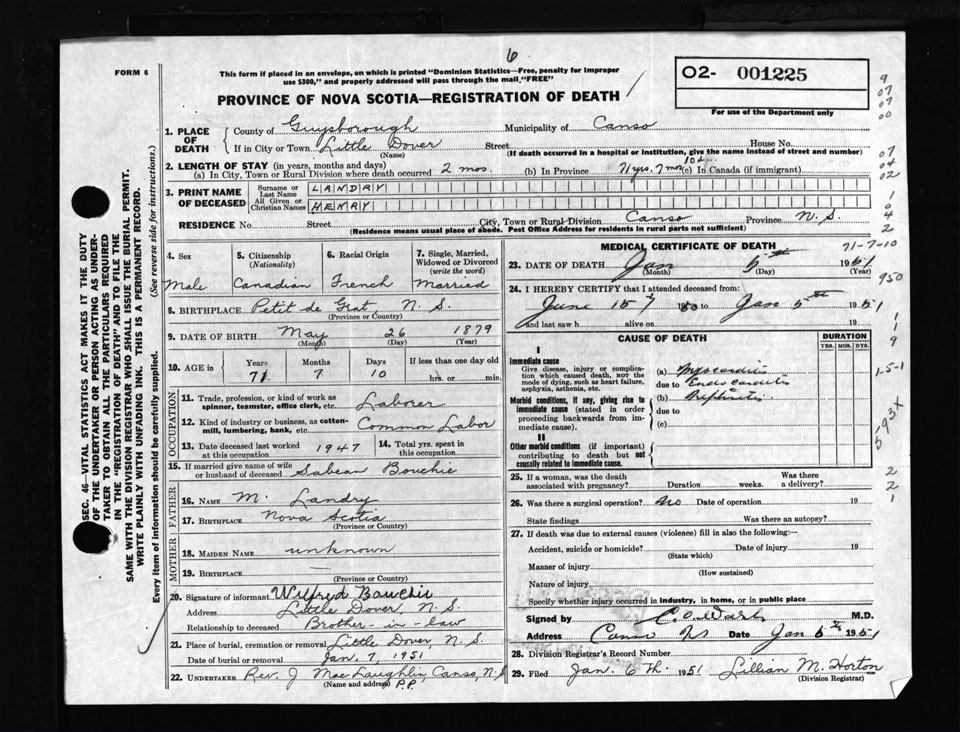 6
FORM 6
This form if placed in an envelope, on which is printed "Dominion Statistics—Free, penalty for improper
use $300," and properly addressed will pass through the mail "FREE"
PROVINCE OF NOVA SCOTIA—REGISTRATION OF DEATH
O2- 001225
For use of the Department only
1. PLACE OF DEATH
County of Guysborough Municipality of Canso
If in City or Town Little Dover Street House No.
(Name) (If death occurred in a hospital or institution, give the name instead of street and number)
2. LENGTH OF STAY (in years, months and days)
(a) In City, Town or Rural Division where death occurred 2 mos. (b) In Province 71 yrs. 7 mos 10 d. (c) In Canada (if immigrant)
3. PRINT NAME OF DECEASED
Surname or Last Name LANDRY
All Given or Christian Names HENRY
RESIDENCE No. Street City, Town or Rural Division Canso Province N. S.
(Residence means usual place of abode. Post Office Address for residents in rural parts not sufficient)
4. Sex
Male
5. Citizenship
(Nationality)
Canadian
6. Racial Origin
French
7. Single, Married,
Widowed or Divorced
(write the word)
Married
8. BIRTHPLACE Petit de Grat, N. S.
(Province or Country)
9. DATE OF BIRTH May 26 1879
(Month) (Day) (Year)
10. AGE in Years Months Days If less than one day old
71 7 10 hrs. or min.
OCCUPATION
11. Trade, profession, or kind of work as
spinner, teamster, office clerk, etc. Laborer
12. Kind of industry or business, as cotton-
mill, lumbering, bank, etc. Common Labor
13. Date deceased last worked
at this occupation 1947
14. Total yrs. spent in
this occupation
15. If married give name of wife
or husband of deceased Sabean Bouchie
FATHER
16. NAME M. Landry
17. BIRTHPLACE Nova Scotia
(Province or Country)
MOTHER
18. MAIDEN NAME unknown
19. BIRTHPLACE —
(Province or Country)
20. Signature of informant Wilfred Bouchie
Address Little Dover, N. S.
Relationship to deceased Brother-in-law
21. Place of burial, cremation or removal Little Dover, N. S.
Date of burial or removal Jan. 7, 1951
22. UNDERTAKER Rev. J MacLaughlin, Canso, N. S
(Name and address) P.P.
MEDICAL CERTIFICATE OF DEATH
71-7-10
23. DATE OF DEATH Jan 5th 1951
(Month) (Day) (Year)
24. I HEREBY CERTIFY that I attended deceased from:
June 15 1950 to Jan 5th 1951
and last saw h alive on 19
CAUSE OF DEATH
DURATION
YRS. MOS. DYS.
I
Immediate cause
Give disease, injury or complica-
tion which caused death, NOT the
mode of dying, such as heart failure,
asphyxia, asthenia, etc.
(a) Myocarditis
due to Endocarditis
Morbid conditions, if any, giving rise to
immediate cause (stated in order
proceeding backwards from im-
mediate cause).
(b) Nephritis
due to
(c)
II
Other morbid conditions (if important)
contributing to death but not
causally related to immediate cause.
25. If a woman, was the death
associated with pregnancy? Duration weeks. Was there
a delivery?
26. Was there a surgical operation? No Date of operation 19
State findings Was there an autopsy?
27. If death was due to external causes (violence) fill in also the following:—
Accident, suicide or homicide? Date of injury 19
(State which)
Manner of injury
(How sustained)
Nature of injury
Specify whether injury occurred in industry, in home, or in public place
Signed by M.D.
Address Canso NS Date Jan 6th 1951
28. Division Registrar's Record Number
29. Filed Jan. 6th 1951 Lillian M. Horton
(Division Registrar)
SEC. 46—VITAL STATISTICS ACT MAKES IT THE DUTY
OF THE UNDERTAKER OR PERSON ACTING AS UNDER-
TAKER TO OBTAIN ALL THE PARTICULARS REQUIRED
IN THE "REGISTRATION OF DEATH" AND TO FILE THE
SAME WITH THE DIVISION REGISTRAR WHO SHALL ISSUE THE BURIAL PERMIT.
WRITE PLAINLY WITH UNFADING INK. THIS IS A PERMANENT RECORD.
Every item of information should be carefully supplied. (See reverse side for instructions.)
9
07
07
00
07
04
02
1
0
4
2
950
1
1
9
1-5-1
2
2
1